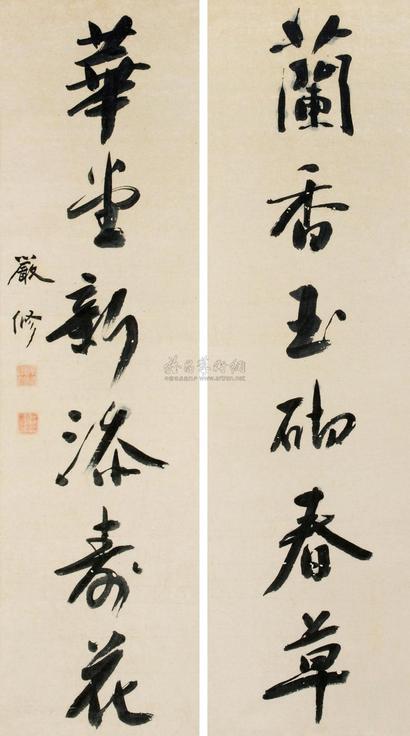 蘭香玉砌春草
華堂新添壽花
嚴修
www.artron.net